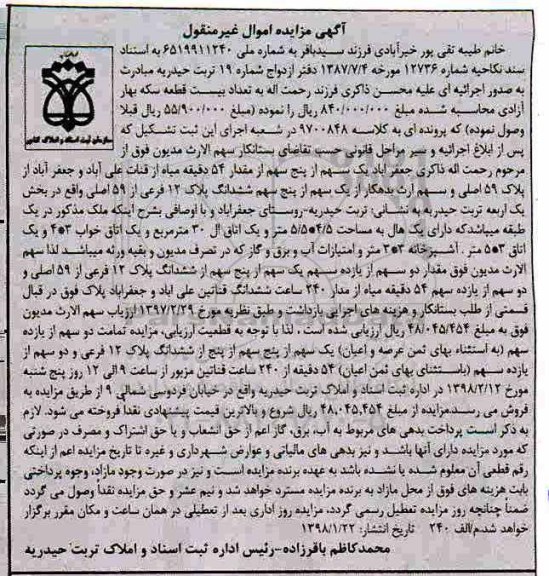 آگهی مزایده اموال غیرمنقول
خانم طیبه تقی پور خیرآبادی فرزند سیدباقر به شماره ملی ۶۵۱۹۹۱۱۲۴۰ به استناد
سند نکاحیه شماره ۱۲۷۳۶ مورخه ۱۳۸۷/۷/۴ دفتر ازدواج شماره ۱۹ تربت حیدریه مبادرت
به صدور اجرائیه ای علیه محسن ذاکری فرزند رحمت اله به تعداد بیست قطعه سکه بهار
آزادی محاسبه شده مبلغ ۸۴۰/۰۰۰/۰۰۰ ریال را نموده (مبلغ ۵۵/۹۰۰/۰۰۰ ریال قبلا
وصول نموده) که پرونده ای به کلاسه ۹۷۰۰۸۴۸ در شعبه اجرای این ثبت تشکیل که
پس از ابلاغ اجرائیه و سیر مراحل قانونی حسب تقاضای بستانکار سهم الارث مدیون فوق از
سازمان ثبت اسناد و املاک کشور
مرحوم رحمت اله ذاکری جعفر آباد یک سهم از پنج سهم از مقدار ۵۴ دقیقه میاه از قنات علی آباد و جعفر آباد از
پلاک ۵۹ اصلی و سهم ارث بدهکار از یک سهم از پنج سهم ششدانگ پلاک ۱۲ فرعی از ۵۹ اصلی واقع در بخش
یک اربعه تربت حیدریه به نشانی: تربت حیدریه-روستای جعفراباد و با اوصافی بشرح اینکه ملک مذکور در یک
طبقه میباشدکه دارای یک هال به مساحت ۴/۵*۵/۵ متر و یک اتاق ال ۳۰ مترمربع و یک اتاق خواب ۳*۴ و یک
اتاق ۳*۵ متر. آشپزخانه ۳*۳ متر و امتیازات آب و برق و گاز که در تصرف مدیون و بقیه ورثه میباشد لذا سهم
الارث مدیون فوق مقدار دو سهم از یازده سهم یک سهم از پنج سهم از ششدانگ پلاک ۱۲ فرعی از ۵۹ اصلی و
دو سهم از یازده سهم ۵۴ دقیقه میاه از مدار ۲۴۰ ساعت ششدانگ قناتین علی اباد و جعفراباد پلاک فوق در قبال
قسمتی از طلب بستانکار و هزینه های اجرایی بازداشت و طبق نظریه مورخ ۱۳۹۷/۲/۲۹ ارزیاب سهم الارث مدیون
فوق به مبلغ ۴۸/۰۴۵/۴۵۴ ریال ارزیابی شده است ، لذا با توجه به قطعیت ارزیابی، مزایده تمامت دو سهم از یازده
سهم (به استثناء بهای ثمن عرصه و اعیان) یک سهم از پنج سهم از پنج از ششدانگ پلاک ۱۲ فرعی و دو سهم از
یازده سهم (باستثنای بهای ثمن اعیان) ۵۴ دقیقه از ۲۴۰ ساعت قناتین مزبور از ساعت ۹ الی ۱۲ روز پنج شنبه
مورخ ۱۳۹۸/۲/۱۲ در اداره ثبت اسناد و املاک تربت حیدریه واقع در خیابان فردوسی شمالی ۹ از طریق مزایده به
فروش می رسد.مزایده از مبلغ ۴۸,۰۴۵,۴۵۴ ریال شروع و بالاترین قیمت پیشنهادی نقدا فروخته می شود. لازم
به ذکر است پرداخت بدهی های مربوط به آب، برق، گاز اعم از حق انشعاب و یا حق اشتراک و مصرف در صورتی
که مورد مزایده دارای آنها باشد و نیز بدهی های مالیاتی و عوارض شهرداری و غیره تا تاریخ مزایده اعم از اینکه
رقم قطعی آن معلوم شده یا نشده باشد به عهده برنده مزایده است و نیز در صورت وجود مازاد، وجوه پرداختی
بابت هزینه های فوق از محل مازاد به برنده مزایده مسترد خواهد شد و نیم عشر و حق مزایده نقدا وصول می گردد
ضمنا چنانچه روز مزایده تعطیل رسمی گردد، مزایده روز اداری بعد از تعطیلی در همان ساعت و مکان مقرر برگزار
خواهد شد.م/الف ۲۴۰ تاریخ انتشار: ۱۳۹۸/۱/۲۲
محمدکاظم باقرزاده-رئیس اداره ثبت اسناد و املاک تربت حیدریه